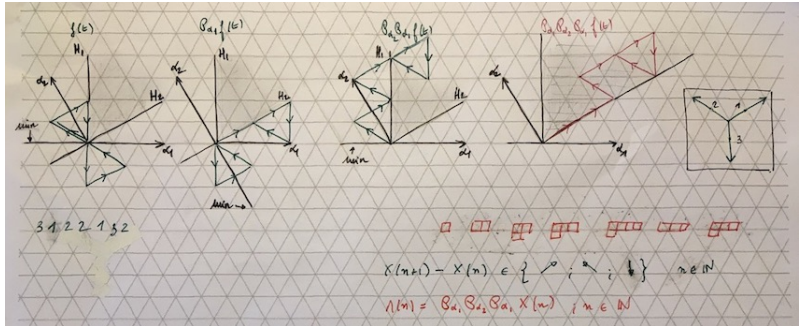 f(t)
H₁
α₂
H₂
α₁
min
P_{α₁} f(t)
H₁
α₂
H₂
α₁
min
P_{α₂} P_{α₁} f(t)
H₁
α₂
H₂
α₁
min
P_{α₁} P_{α₂} P_{α₁} f(t)
α₂
α₁
2 1
3
3 1 2 2 1 3 2
X(n+1) - X(n) ∈ { ↗ ; ↖ ; ↓ } n ∈ ℕ
Λ(n) = P_{α₁} P_{α₂} P_{α₁} X(n) ; n ∈ ℕ